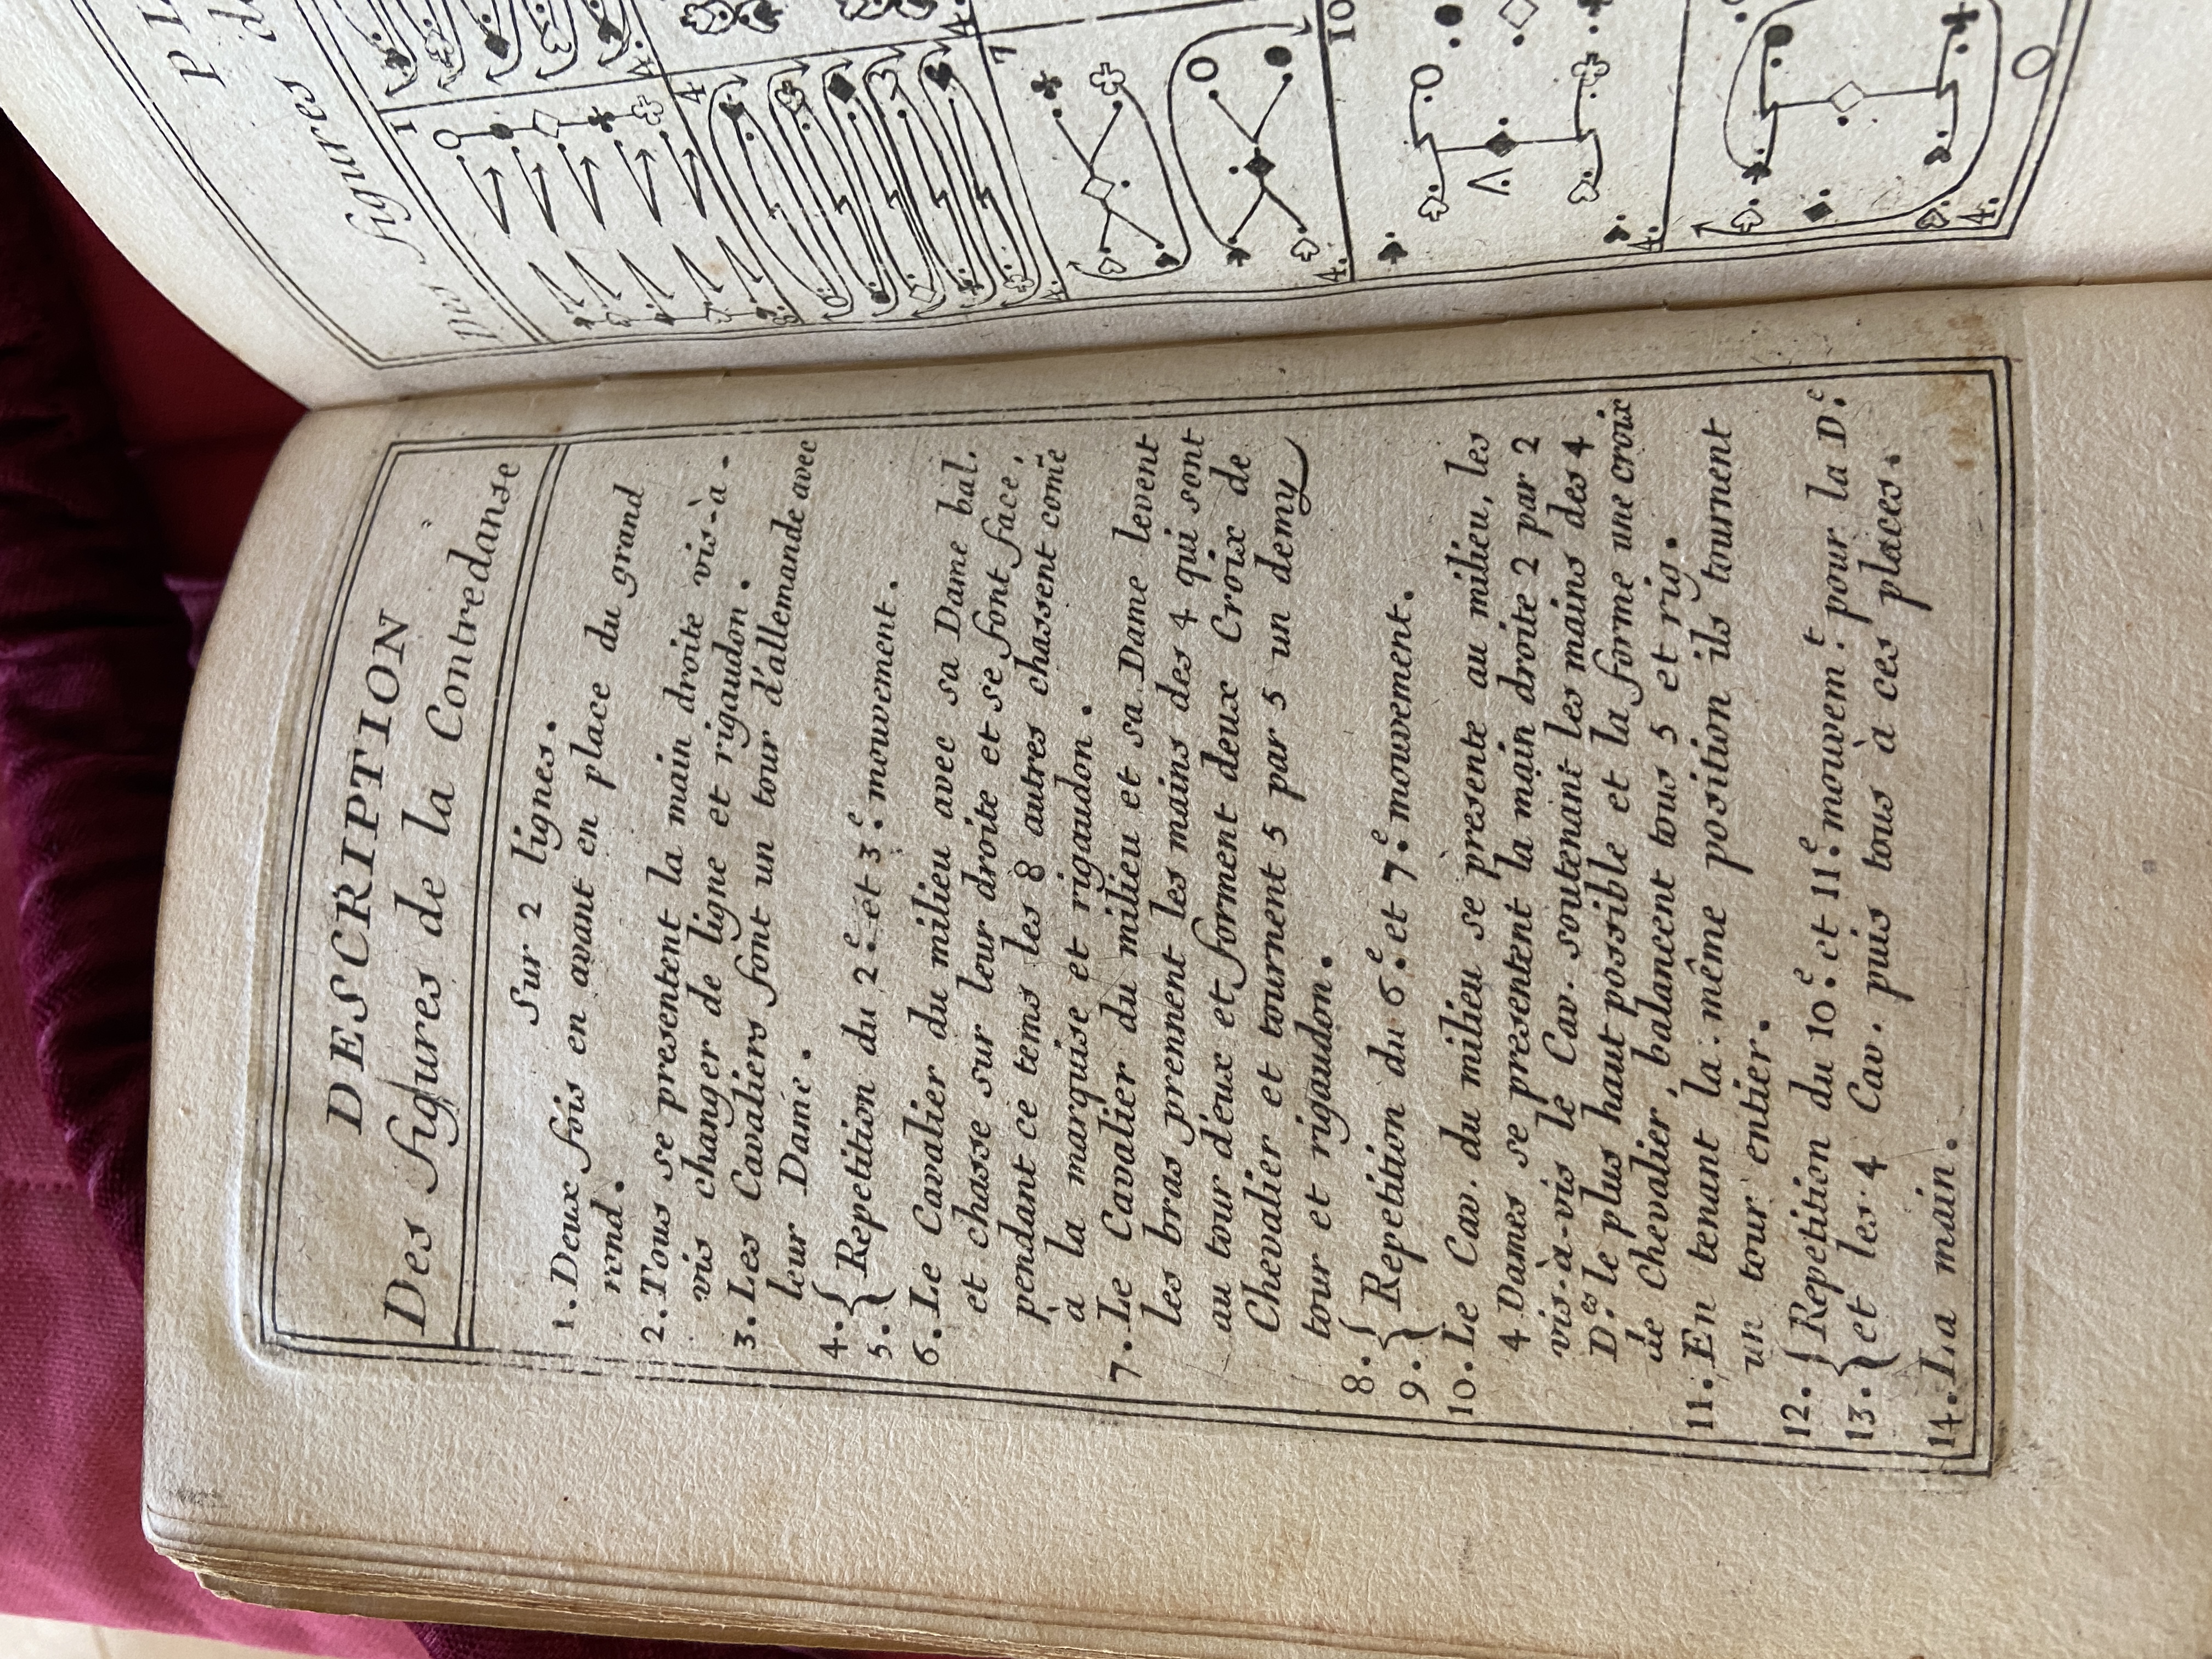 DESCRIPTION
Des figures de la Contredanse
Sur 2 lignes.
1. Deux fois en avant en place du grand
rond.
2. Tous se presentent la main droite vis-à-
vis changer de ligne et rigaudon.
3. Les Cavaliers font un tour d'allemande avec
leur Dame.
4. { Repetition du 2.e et 3.e mouvement.
5. {
6. Le Cavalier du milieu avec sa Dame bal.
et chasse sur leur droite et se font face,
pendant ce tems les 8 autres chassent comẽ
à la marquise et rigaudon.
7. Le Cavalier du milieu et sa Dame levent
les bras prennent les mains des 4 qui sont
au tour d'eux et forment deux Croix de
Chevalier et tournent 5 par 5 un demy
tour et rigaudon.
8. { Repetition du 6.e et 7.e mouvement.
9. {
10. Le Cav. du milieu se presente au milieu, les
4 Dames se presentent la main droite 2 par 2
vis-à-vis le Cav. soutenant les mains des 4
D.es le plus haut possible et la forme une croix
de Chevalier, balancent tous 5 et rig.
11. En tenant la même position ils tournent
un tour entier.
12. { Repetition du 10.e et 11.e mouvem.t pour la D.e
13. { et les 4 Cav. puis tous à ces places.
14. La main.
PL
Des figures de
1
4
4.
4.
4.
7
4.
10
4.
4.